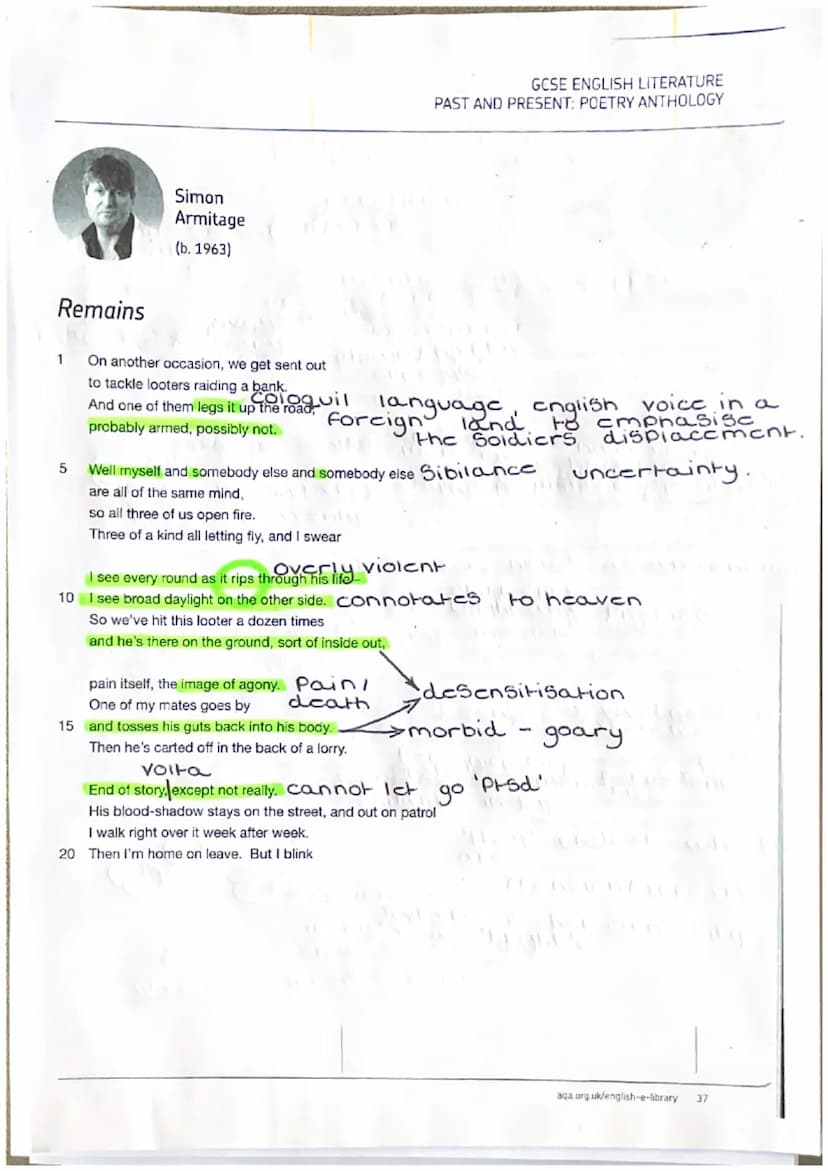 GCSE ENGLISH LITERATURE
PAST AND PRESENT: POETRY ANTHOLOGY
Simon
Armitage
(b. 1963)
Remains
1 On another occasion, we get sent out
to tackle looters raiding a bank.
And one of them legs it up the road,
probably armed, possibly not.
cologuil language, english voice in a
foreign land to emphasise
the soldiers displacement.
5 Well myself and somebody else and somebody else sibilance uncertainty.
are all of the same mind,
so all three of us open fire.
Three of a kind all letting fly, and I swear
overly violent
I see every round as it rips through his life –
10 I see broad daylight on the other side. connotates to heaven
So we've hit this looter a dozen times
and he's there on the ground, sort of inside out,
pain itself, the image of agony. Pain/
death
desensitisation
One of my mates goes by
15 and tosses his guts back into his body. morbid - goary
Then he's carted off in the back of a lorry.
volta
End of story, except not really. cannot let go 'Ptsd'
His blood-shadow stays on the street, and out on patrol
I walk right over it week after week.
20 Then I'm home on leave. But I blink
aqa.org.uk/english-e-library 37